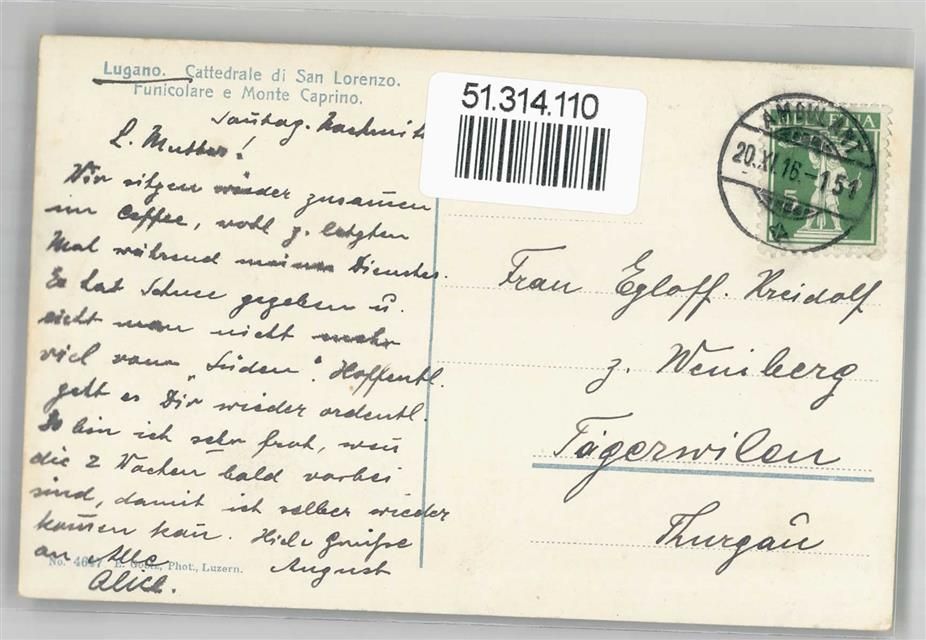 Lugano. Cattedrale di San Lorenzo.
Funicolare e Monte Caprino.
51.314.110
AMBULANT
20.XI.16-151
HELVETIA
5
Soñtag. Nachmitt
L. Mutter!
Wir sitzen wieder zusam̄en
im Caffee, wohl z. letzten
Mal während meines Dienstes.
Es hat Schnee gegeben u.
sieht man nicht mehr
viel vom „Süden". Hoffentl.
geht es Dir wieder ordentl.
So bin ich sehr froh, wen̄
die 2 Wochen bald vorbei
sind, damit ich selber wieder
kom̄en kan̄. Viele Grüße
an Alle August
Alice.
No. 4647 E. Goetz, Phot., Luzern.
Frau Egloff-Kreidolf
z. Weinberg
Tägerwilen
Thurgau